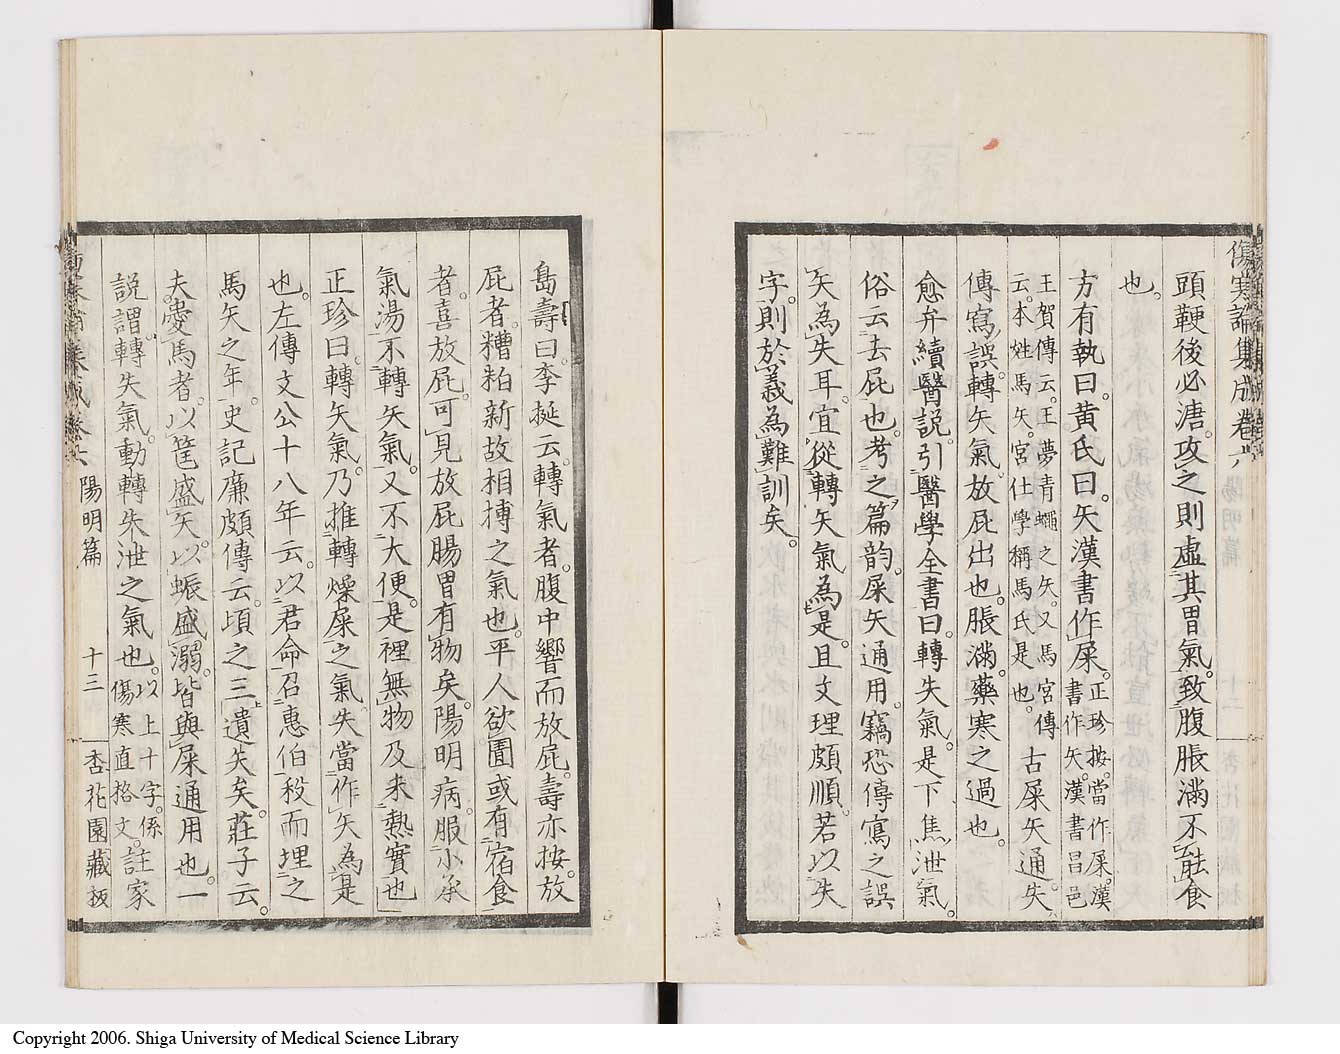 傷寒論集成卷六
頭鞕後必溏。攻之則虛其胃氣。致腹脹滿不能食
也。
方有執曰。黃氏曰。矢漢書作屎。正珍按。當作屎。漢書作矢。漢書昌邑
王賀傳云。王夢青蠅之矢。又馬宮傳云。本姓馬矢。宮仕學稱馬氏是也。古屎矢通。失
傳寫誤。轉矢氣。放屁出也。脹滿。藥寒之過也。
愈弁續醫說。引醫學全書曰。轉失氣。是下焦泄氣。
俗云去屁也。考之篇韵。屎矢通用。竊恐傳寫之誤
矢為失耳。宜從轉矢氣為是。且文理頗順。若以失
字。則於義為難訓矣。
島壽曰。李挻云。轉氣者。腹中響而放屁。壽亦按。放
屁者。糟粕新故相摶之氣也。平人欲圊。或有宿食
者。喜放屁。可見放屁腸胃有物矣。陽明病。服小承
氣湯。不轉矢氣。又不大便。是裡無物及未熱實也
正珍曰。轉矢氣。乃推轉燥屎之氣。失當作矢為是
也。左傳文公十八年云。以君命召惠伯殺而埋之
馬矢之年。史記廉頗傳云。頃之三遺矢矣。莊子云。
夫愛馬者。以筐盛矢。以蜄盛溺。皆與屎通用也。一
說謂轉失氣。動轉失泄之氣也。以上十字。係傷寒直格文。註家
陽明篇 十三 杏花園藏板